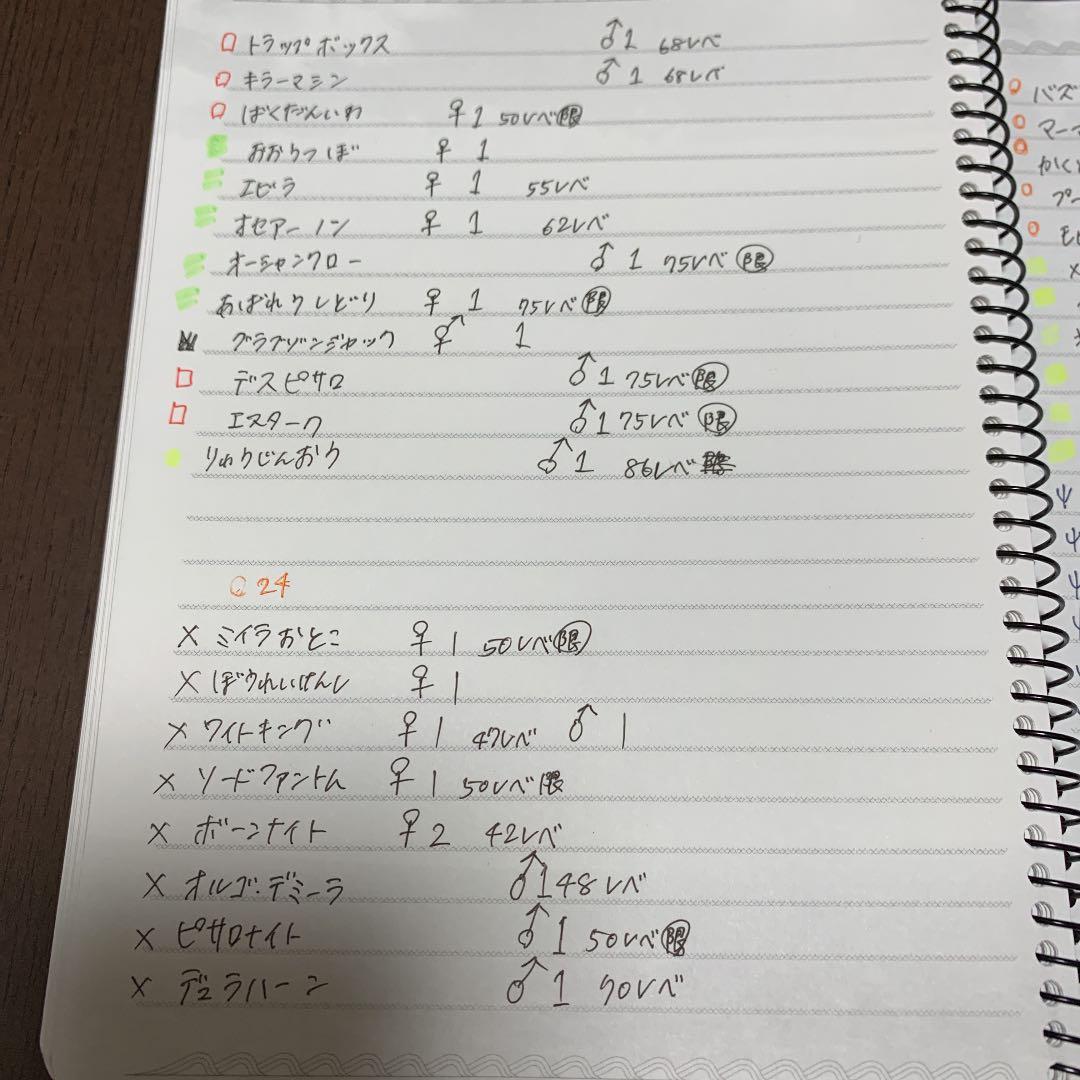 トラップボックス ♂1 68レベ
キラーマシン ♂1 68レベ
ばくだんいわ ♀1 50レベ限
おおうつぼ ♀ 1
エビラ ♀ 1 55レベ
オセアーノン ♀ 1 62レベ
オーシャンクロー ♂ 1 75レベ 限
あばれうしどり ♀ 1 75レベ限
グラブゾンジャック 1
デスピサロ ♂1 75レベ限
エスターク ♂1 75レベ 限
りゅうじんおう ♂1 86レベ
C 24
× ミイラおとこ ♀ 1 50レベ限
× ぼうれいけんし ♀ 1
× ワイトキング ♀ 1 47レベ ♂ 1
× ソードファントム ♀ 1 50レベ限
× ボーンナイト ♀ 2 42レベ
× オルゴ・デミーラ ♂1 48レベ
× ピサロナイト ♂ 1 50レベ限
× デュラハーン ♂ 1 70レベ
バズ
マーマ
かく
プー